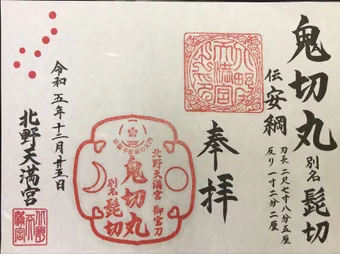 鬼切丸 別名 髭切
伝 安綱
刀長 二尺七寸八分五厘
反り 一寸二分二厘
奉拝
北野天満宮 御宝刀
鬼切丸
別名 髭切
令和五年十二月廿五日
北野天満宮